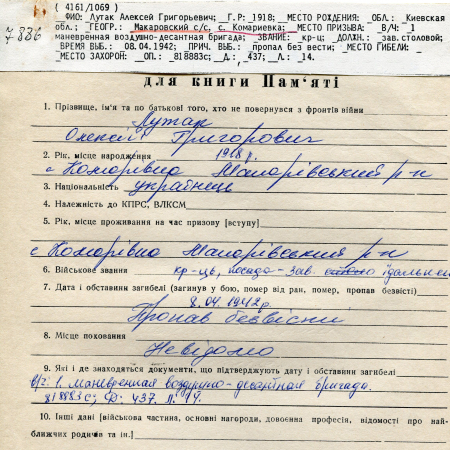 ( 4161/1069 )
7836
ФИО: Лутак Алексей Григорьевич; Г.Р: 1918; МЕСТО РОЖДЕНИЯ: ОБЛ: Киевская
обл.; ГЕОГР.: Макаровский с/с, с. Комариевка; МЕСТО ПРИЗЫВА: В/Ч: 1
маневренная воздушно-десантная бригада; ЗВАНИЕ: кр-ц; ДОЛЖН.: зав.столовой;
ВРЕМЯ ВЫБ.: 08.04.1942; ПРИЧ. ВЫБ.: пропал без вести; МЕСТО ГИБЕЛИ: ;
МЕСТО ЗАХОРОН: ОП.: 818883с; Д.: 437; Л.: 14.
для книги Пам'яті
1. Прізвище, ім'я та по батькові того, хто не повернувся з фронтів війни
Лутак
Олексій Григорович
2. Рік, місце народження 1918 р.
с Комарівка Макарівський р-н
3. Національність українець
4. Належність до КПРС, ВЛКСМ
5. Рік, місце проживання на час призову [вступу]
с Комарівка Макарівський р-н
6. Військове звання кр-ць, посада - зав. їдальнею
7. Дата і обставини загибелі (загинув у бою, помер від ран, помер, пропав безвісті)
8.04.1942р.
Пропав безвісти
8. Місце поховання
Невідомо
9. Які і де знаходяться документи, що підтверджують дату і обставини загибелі
в/ч: 1. маневренная воздушно-десантная бригада.
818883с; Д: 437. Л. 14.
10. Інші дані [військова частина, основні нагороди, довоєнна професія, відомості про най-
ближчих родичів та ін.]